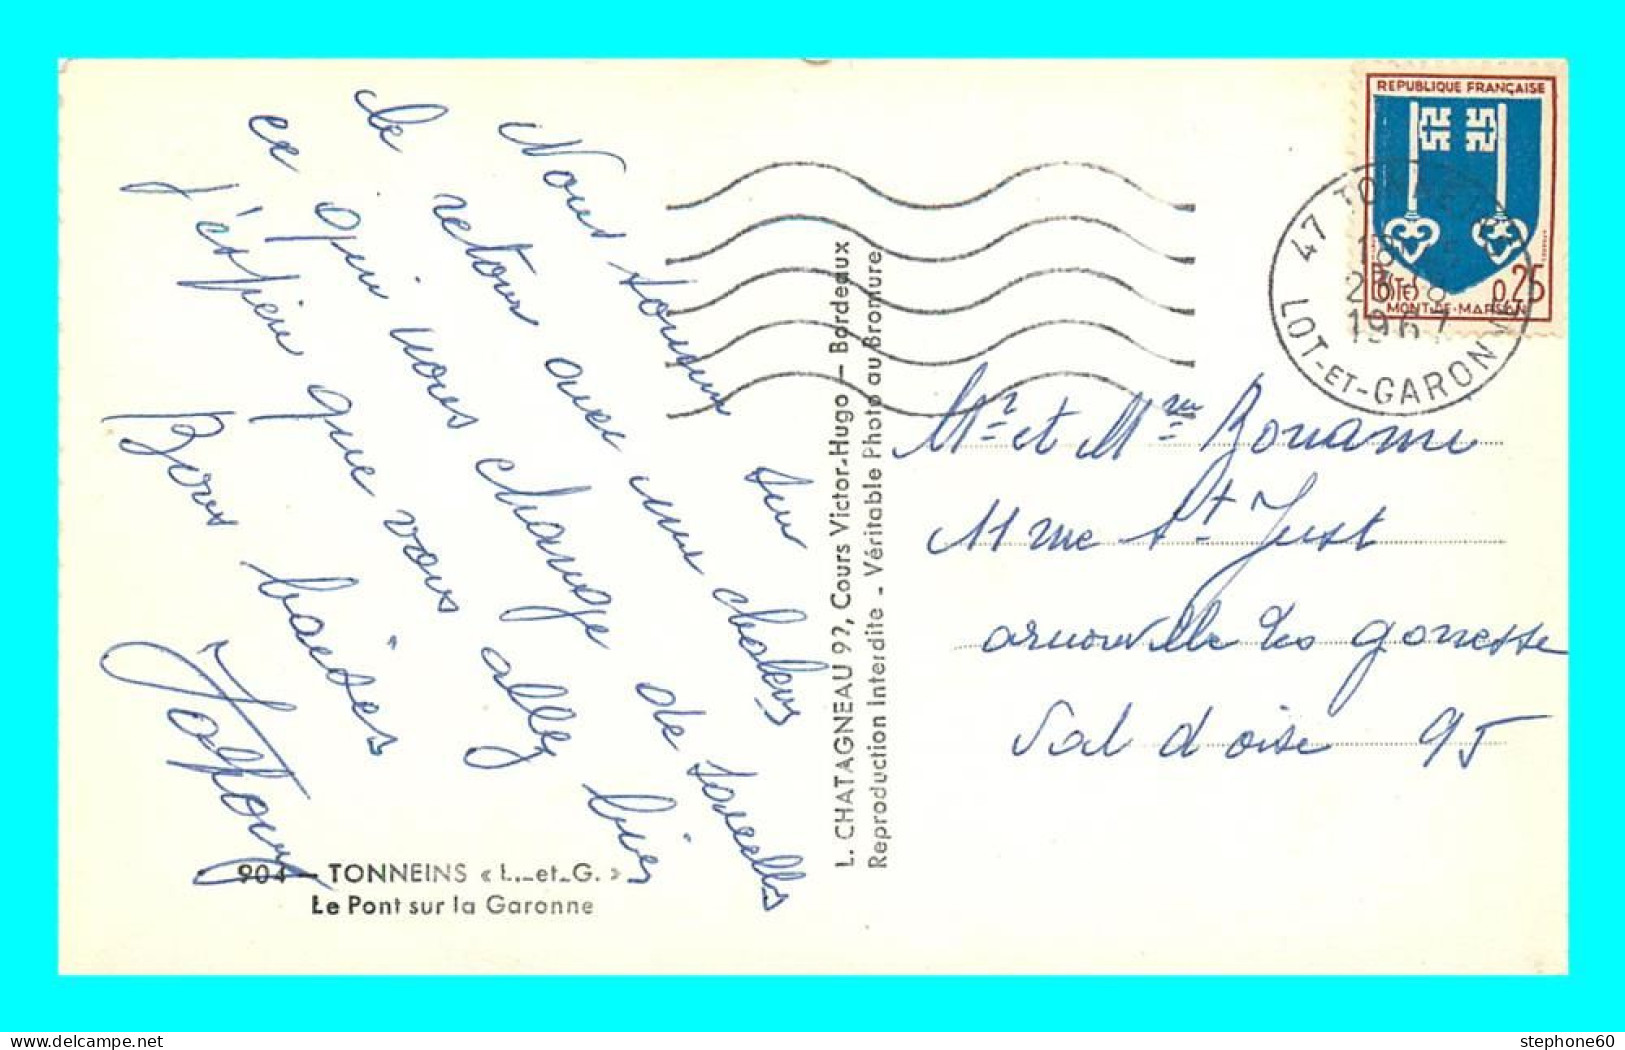 Nous sommes sur
le retour avec une chaleur
ce qui nous change de
J'espère que vous allez bien
Bons baisers
904 — TONNEINS « L.-et-G. »
Le Pont sur la Garonne
L. CHATAGNEAU 97, Cours Victor-Hugo — Bordeaux
Reproduction Interdite - Véritable Photo au Bromure
REPUBLIQUE FRANÇAISE
POSTES 0,25
MONT-DE-MARSAN
47 TONNEINS
1967
LOT-ET-GARONNE
Mr et Mme Bonami
11 rue St Just
arnouville les gonesse
Val d'oise 95
stephone60